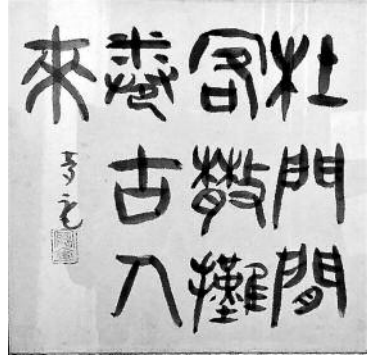 杜門閒
客散擁
卷古人
來